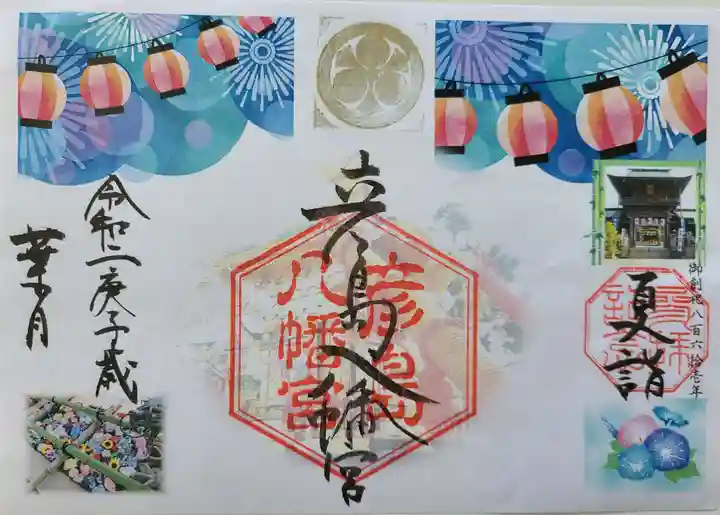 御創祀八百六拾壱年
夏詣
彦島八幡宮
彦島
八幡宮
令和二庚子歳
葉月